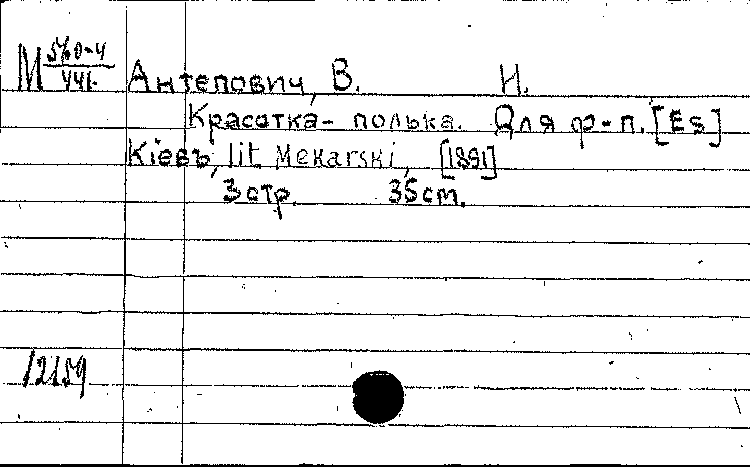 М 560-4
441
Антепович, В. Н.
Красотка- полька. Для ф-п. [Es]
Кіевъ, lit. Mekarski, [1891]
3 стр. 35 cm.
12159